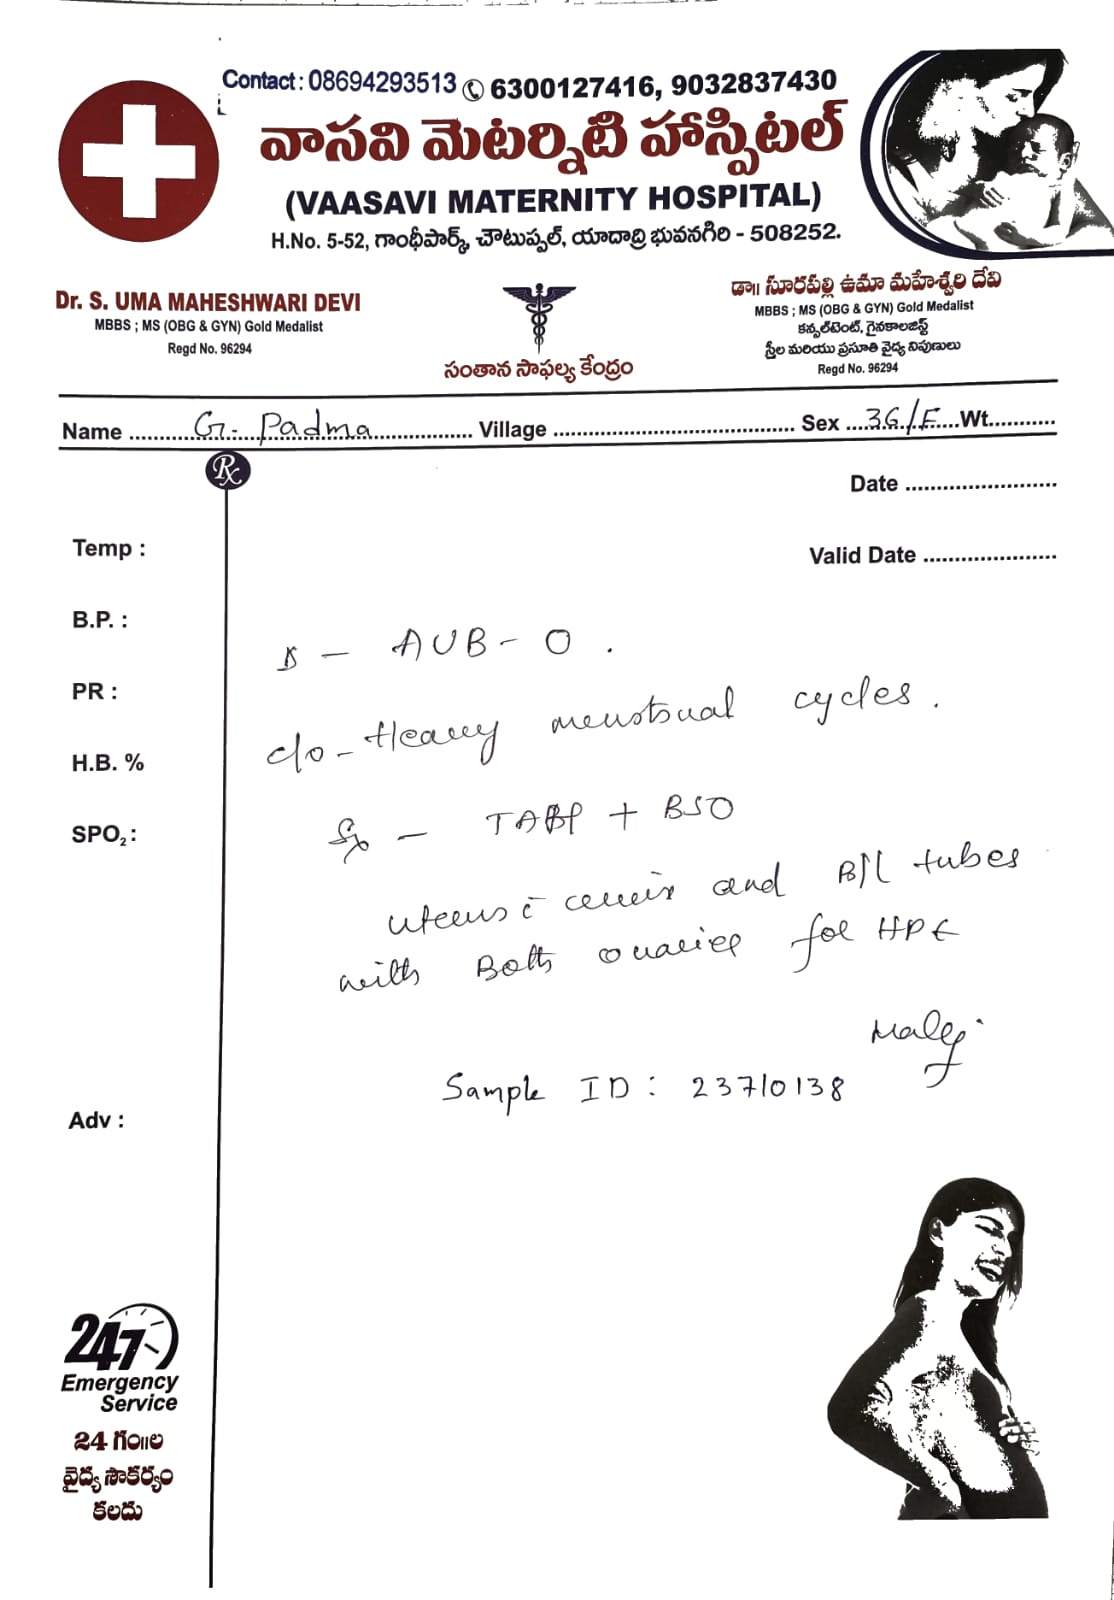 Contact : 08694293513 6300127416, 9032837430
వాసవి మెటర్నిటి హాస్పిటల్
(VAASAVI MATERNITY HOSPITAL)
H.No. 5-52, గాంధీపార్క్, చౌటుప్పల్, యాదాద్రి భువనగిరి - 508252.
Dr. S. UMA MAHESHWARI DEVI
MBBS ; MS (OBG & GYN) Gold Medalist
Regd No. 96294
సంతాన సాఫల్య కేంద్రం
డా॥ సూరపల్లి ఉమా మహేశ్వరి దేవి
MBBS ; MS (OBG & GYN) Gold Medalist
కన్సల్‌టెంట్, గైనకాలజిస్ట్
స్త్రీల మరియు ప్రసూతి వైద్య నిపుణులు
Regd No. 96294
Name G. Padma Village Sex 36/F Wt.
Rx
Date
Temp :
Valid Date
B.P. :
AUB - O .
PR :
c/o - Heavy menstrual cycles .
H.B. %
SPO2 :
+ BSO
uterus c̄ cervix and B/L tubes
with Both ovaries for HPE
Sample ID : 23710138
Adv :
247
Emergency
Service
24 గం॥ల
వైద్య సౌకర్యం
కలదు